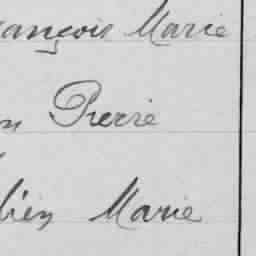 ançois Marie
n Pierre
lien Marie